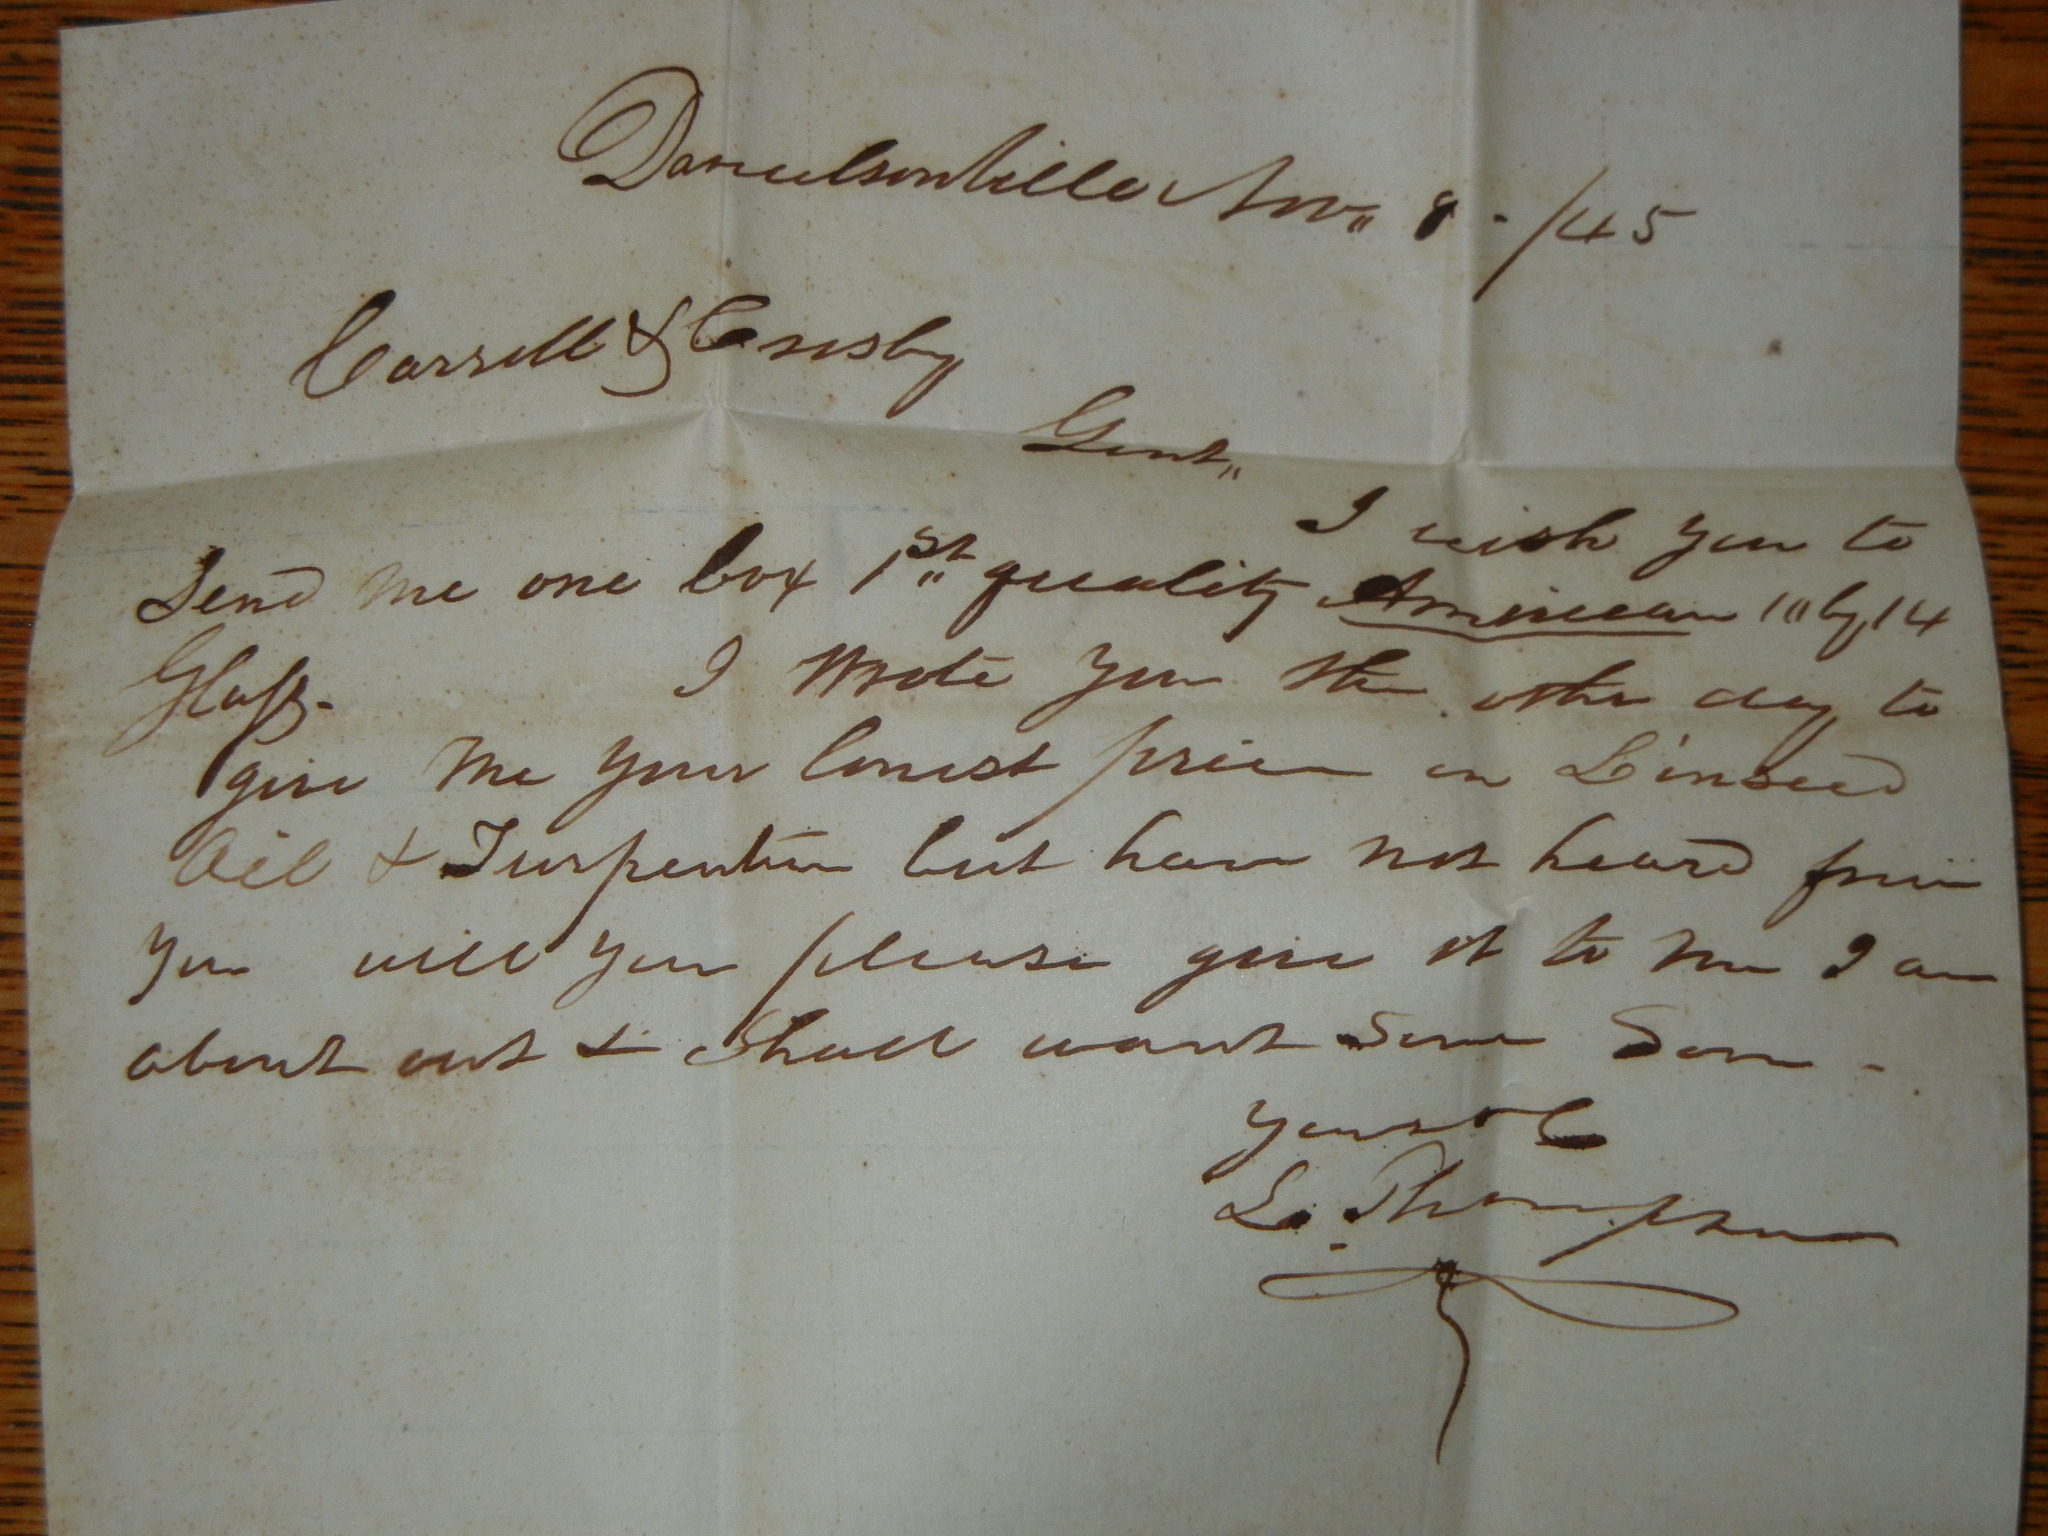 Danielsonville Nov,, 8 - /45
Carrell & Crosby
Gent,,
I wish you to
Send me one box 1st,, quality American 10 by 14
Glass -
I Wrote you the other day to
give me your lowest price on Linseed
Oil & Turpentine but have not heard from
you will you please give it to me I am
about out & Shall want Some Soon -
Yours &C
L. Thompson